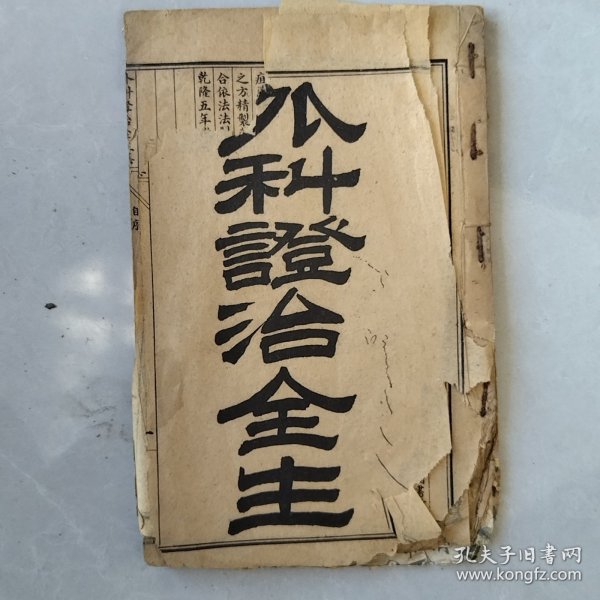 外科證治全生
疽
之方精製
合依法法
乾隆五年
自序
孔夫子旧書网
www.kongfz.com